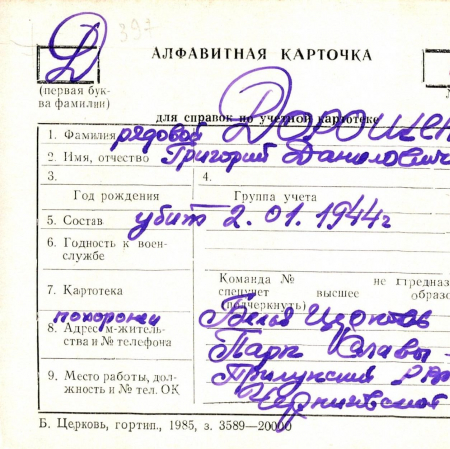 397
Д
АЛФАВИТНАЯ КАРТОЧКА
(первая бук-
ва фамилии)
для справок по учетной картотеке
1. Фамилия рядовой ДОРОШЕН
2. Имя, отчество Григорий Данилович
3. 4.
Год рождения Группа учета
5. Состав убит 2.01.1944г
6. Годность к воен-
службе
Команда № не предназ
7. Картотека спецучет высшее образо
(подчеркнуть)
похоронен Белая Церковь
8. Адрес м-житель-
ства и № телефона Парк Славы -
Прилукский
9. Место работы, дол-
жность и № тел. ОК Черниговской
Б. Церковь, гортип., 1985, з. 3589—20000